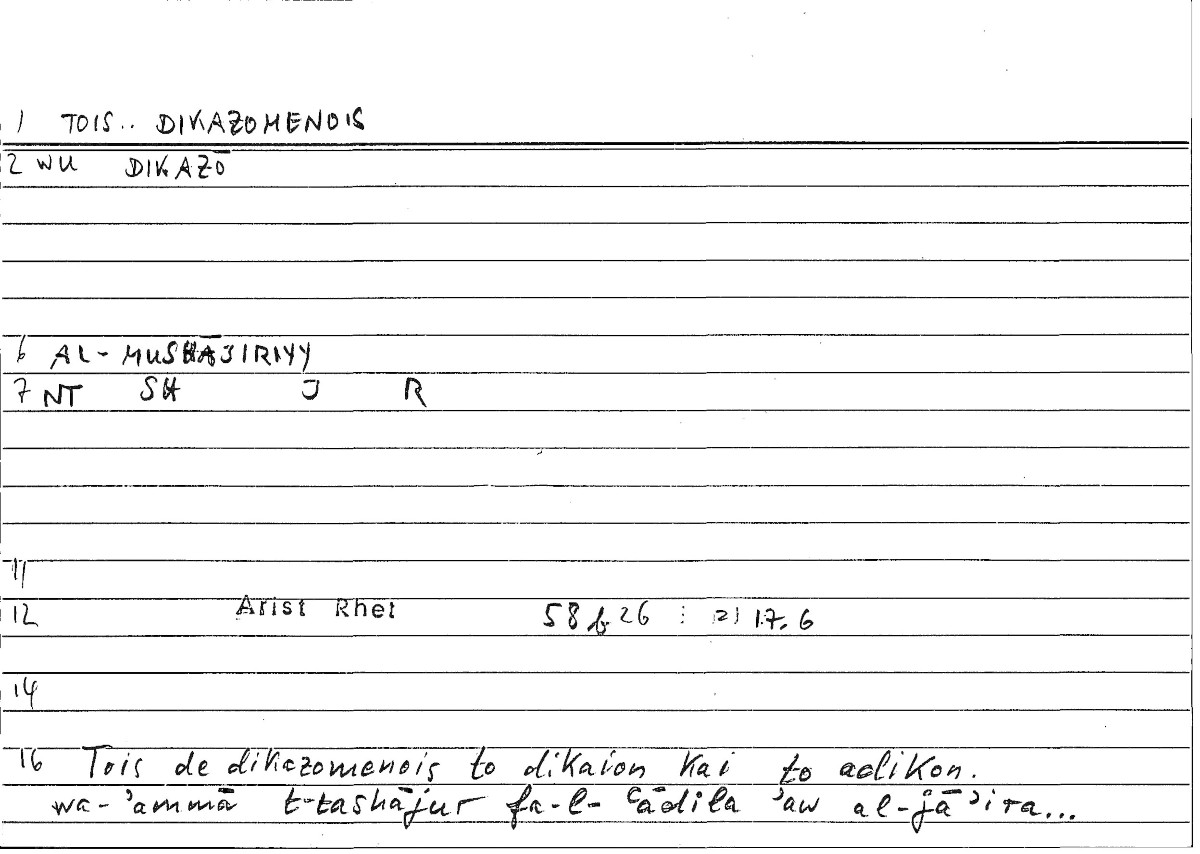 1 TOIS.. DIKAZOMENOIS
2 WU DIKAZŌ
6 AL-MUSHĀJIRIYY
7 NT SH J R
11
12 Arist Rhet 58b26 : (2) 17.6
14
16 Tois de dikazomenois to dikaion kai to adikon.
wa-ʾammā t-tashājur fa-l-ʿādila ʾaw al-jāʾira...